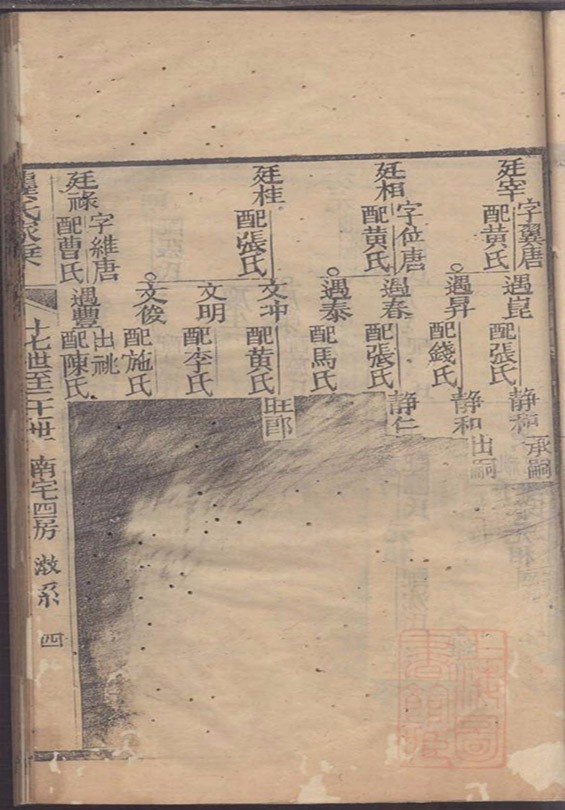 廷宰 字翼唐 配黄氏
遇崑 配張氏
静和 承嗣
遇昇 配錢氏
静和 出嗣
廷相 字位唐 配黄氏
遇春 配張氏
静仁
遇泰 配馬氏
廷桂 配張氏
文冲 配黄氏
文明 配李氏
文俊 配施氏
廷祿 字維唐 配曹氏
遇豐 出祧 配陳氏
氏家乗
十七世至二十世 南宅四房 系 四
上海圖書館藏